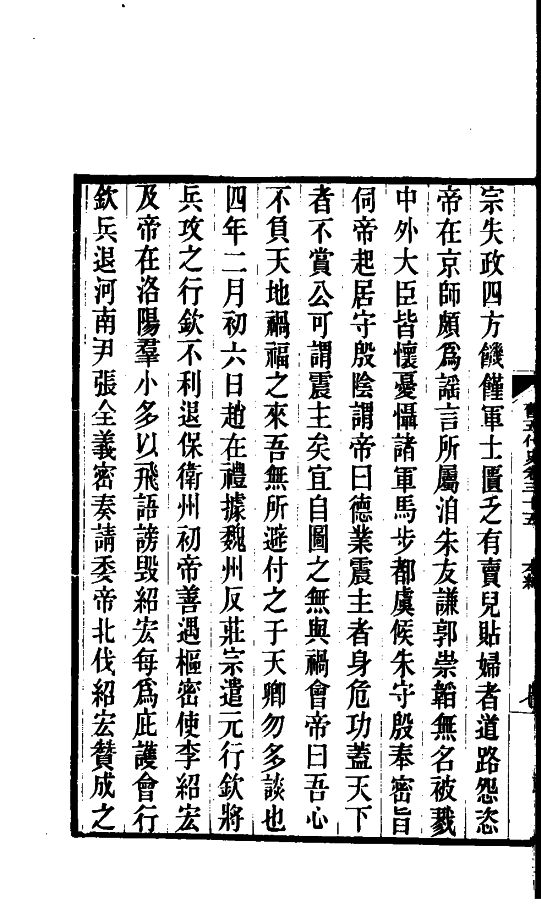 宗失政四方饑饉軍士匱乏有賣兒貼婦者道路怨恣
帝在京師頗爲謡言所屬洎朱友謙郭崇韜無名被戮
中外大臣皆懷憂懾諸軍馬步都虞候朱守殷奉密旨
伺帝起居守殷陰謂帝曰德業震主者身危功蓋天下
者不賞公可謂震主矣宜自圖之無與禍會帝曰吾心
不負天地禍福之來吾無所避付之于天卿勿多談也
四年二月初六日趙在禮據魏州反莊宗遣元行欽將
兵攻之行欽不利退保衛州初帝善遇樞密使李紹宏
及帝在洛陽羣小多以飛語謗毀紹宏每爲庇護會行
欽兵退河南尹張全義密奏請委帝北伐紹宏贊成之